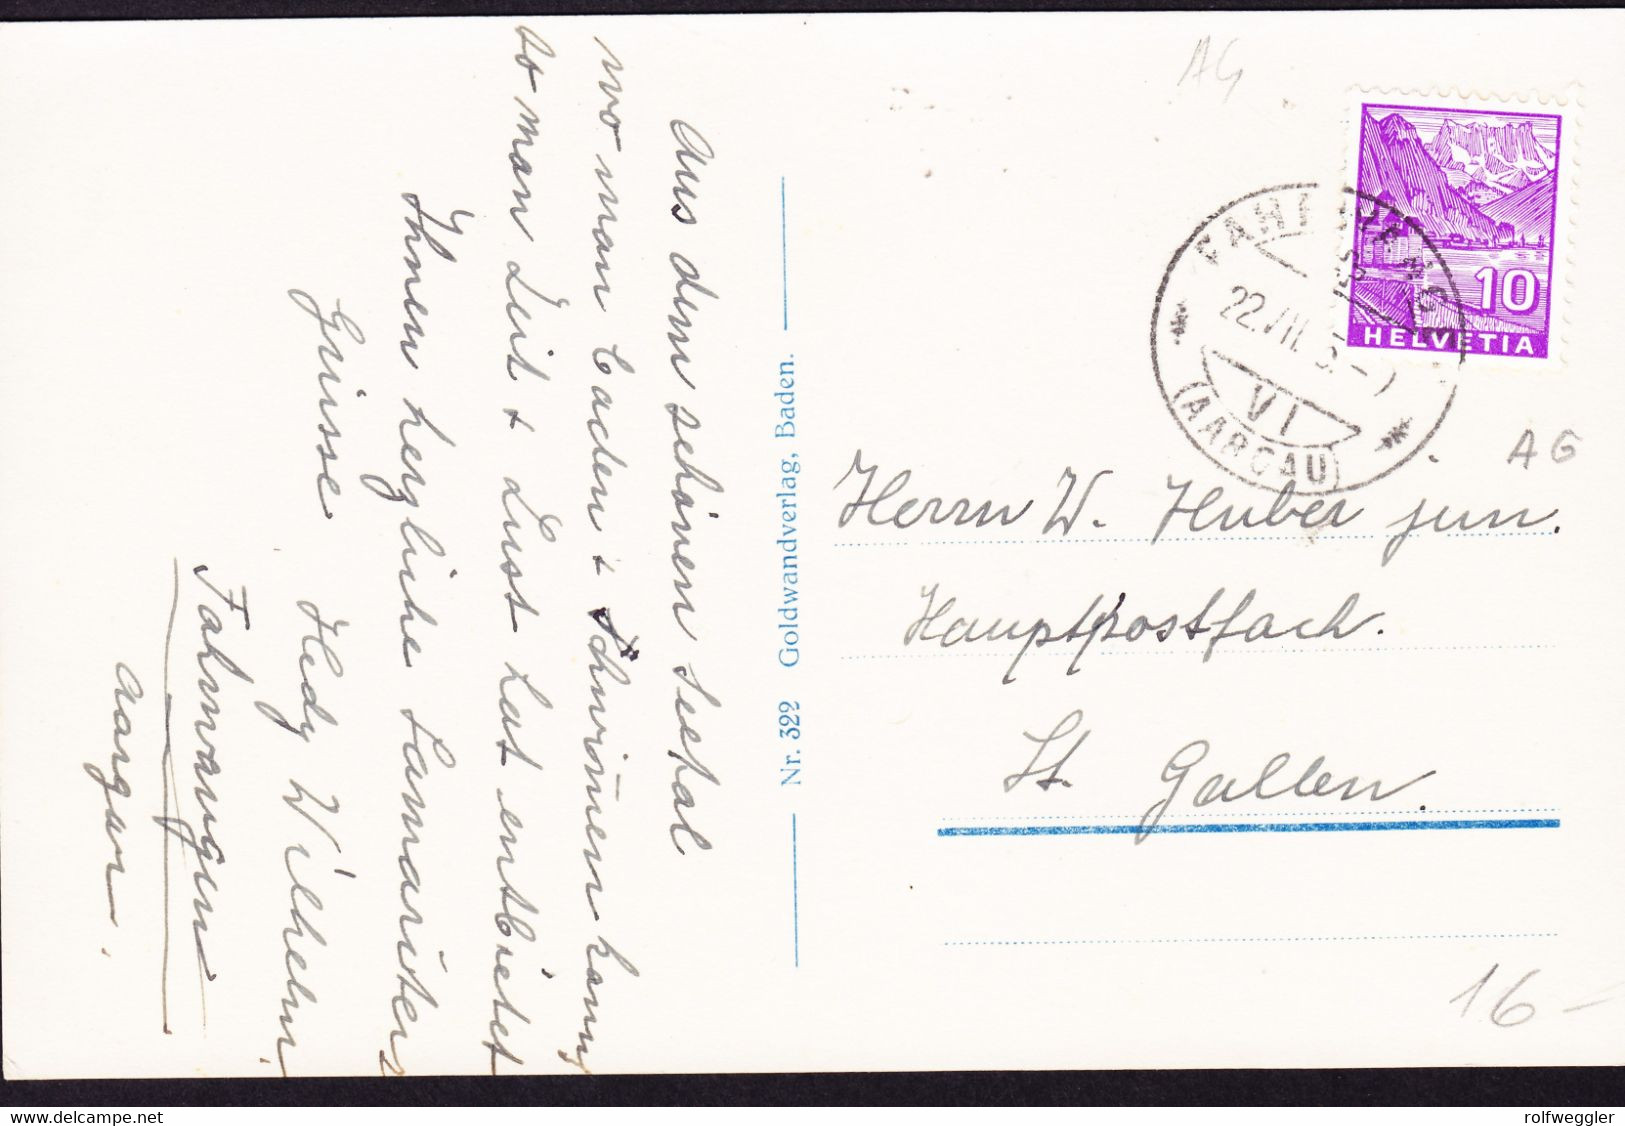 Aus dem schönen Seetal
wo man baden & Schwimen kann,
so man Zeit & Lust hat entbietet
Ihnen herzliche Samariter
Grüsse Hedy Wilhelm
Fahrwangen
Aargau.
Nr. 322 Goldwandverlag, Baden.
AG
HELVETIA
10
22.VII.
VI
(AARGAU)
AG
Herrn W. Huber jun.
Hauptpostfach.
St. Gallen.
16-
delcampe.net
rolfweggler